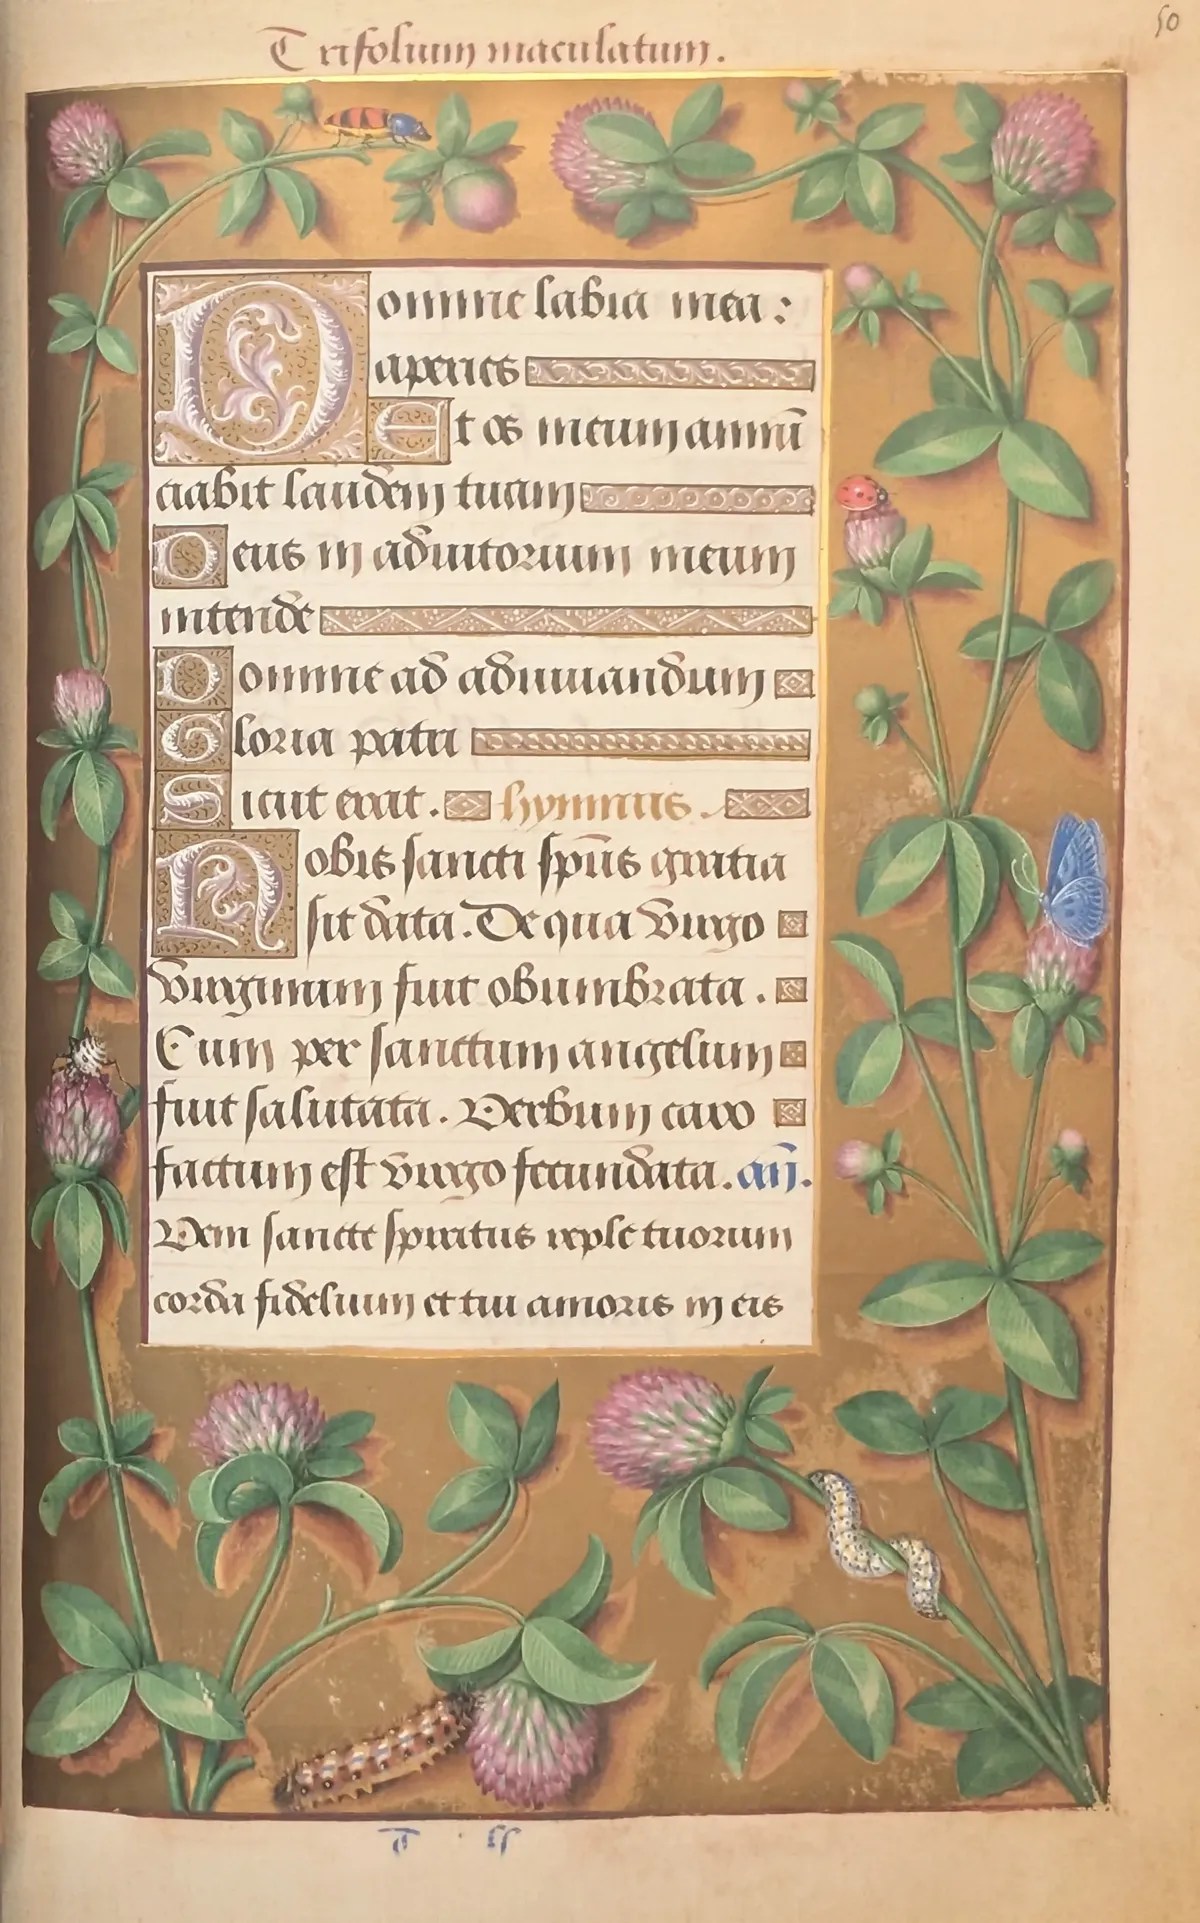 Trifolium maculatum.
50
Domine labia mea:
aperies
Et os meum annū
ciabit laudem tuam
Deus in adiutorium meum
intende
Domine ad adiuuandum
Gloria patri
Sicut erat. hymnus.
Nobis sancti sp̄us gratia
sit data. De qua virgo
virginum fuit obumbrata.
Cum per sanctum angelum
fuit salutata. Verbum caro
factum est virgo fecundata. an̄.
Veni sancte spiritus reple tuorum
corda fidelium et tui amoris in eis